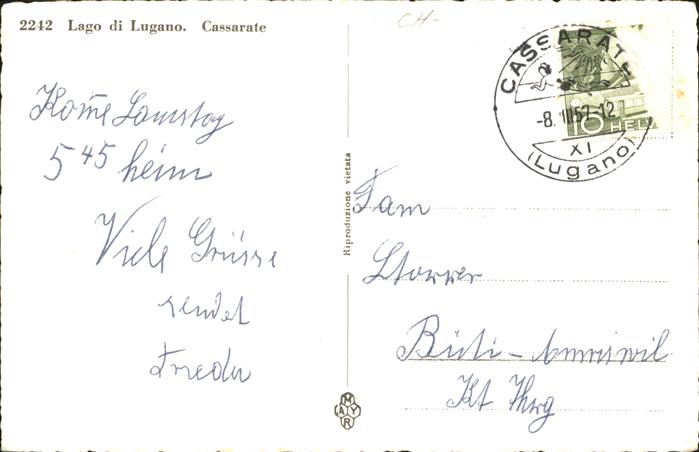 2242 Lago di Lugano. Cassarate
CH-
Kome Samstag
5 45 heim
Viele Grüsse
sendet
Frieda
Riproduzione vietata
MAYR
CASSARATE
-8. 57-12
XI
(Lugano)
10 HELV
Fam
Storrer
Büti-Amriswil
Kt Thrg